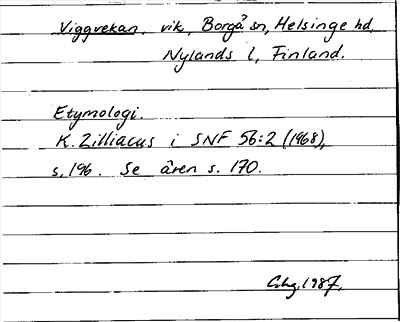 Viggvekan. vik, Borgå sn, Helsinge hd,
Nylands l, Finland.
Etymologi.
K. Zilliacus i SNF 56:2 (1968),
s. 196. Se även s. 170.
1987.